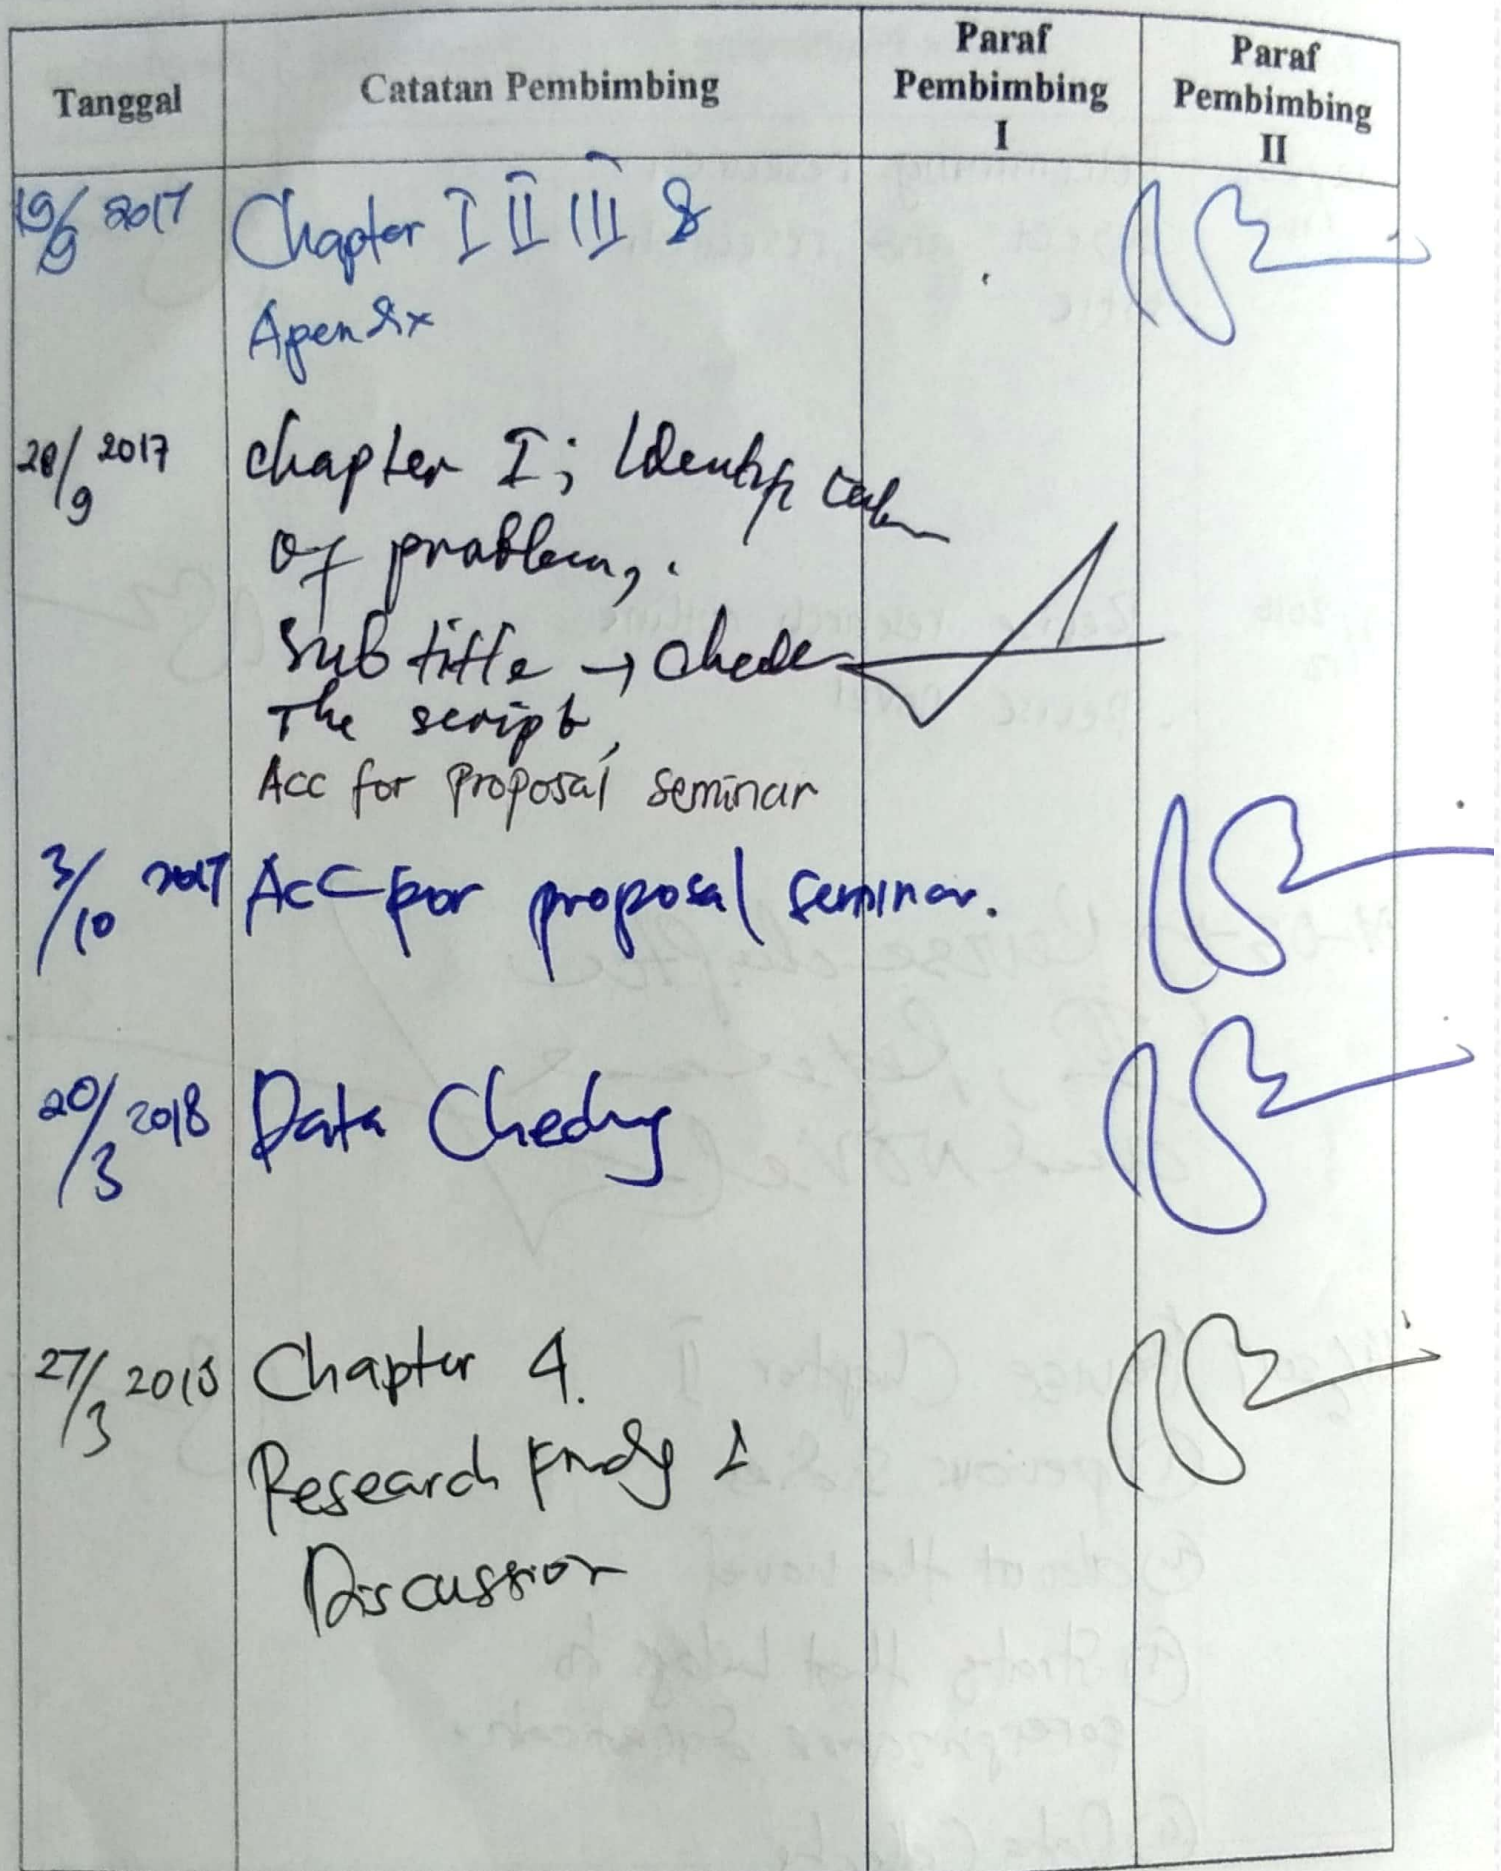 Tanggal
Catatan Pembimbing
Paraf
Pembimbing
I
Paraf
Pembimbing
II
19/9 2017
Chapter I II III &
Apendix
28/9 2017
chapter I; Identification
of problem,.
Sub title → Check
The script,
Acc for Proposal seminar
3/10 2017
Acc for proposal seminar.
20/3 2018
Data Checking
27/3 2018
Chapter 4.
Research Finding &
Discussion